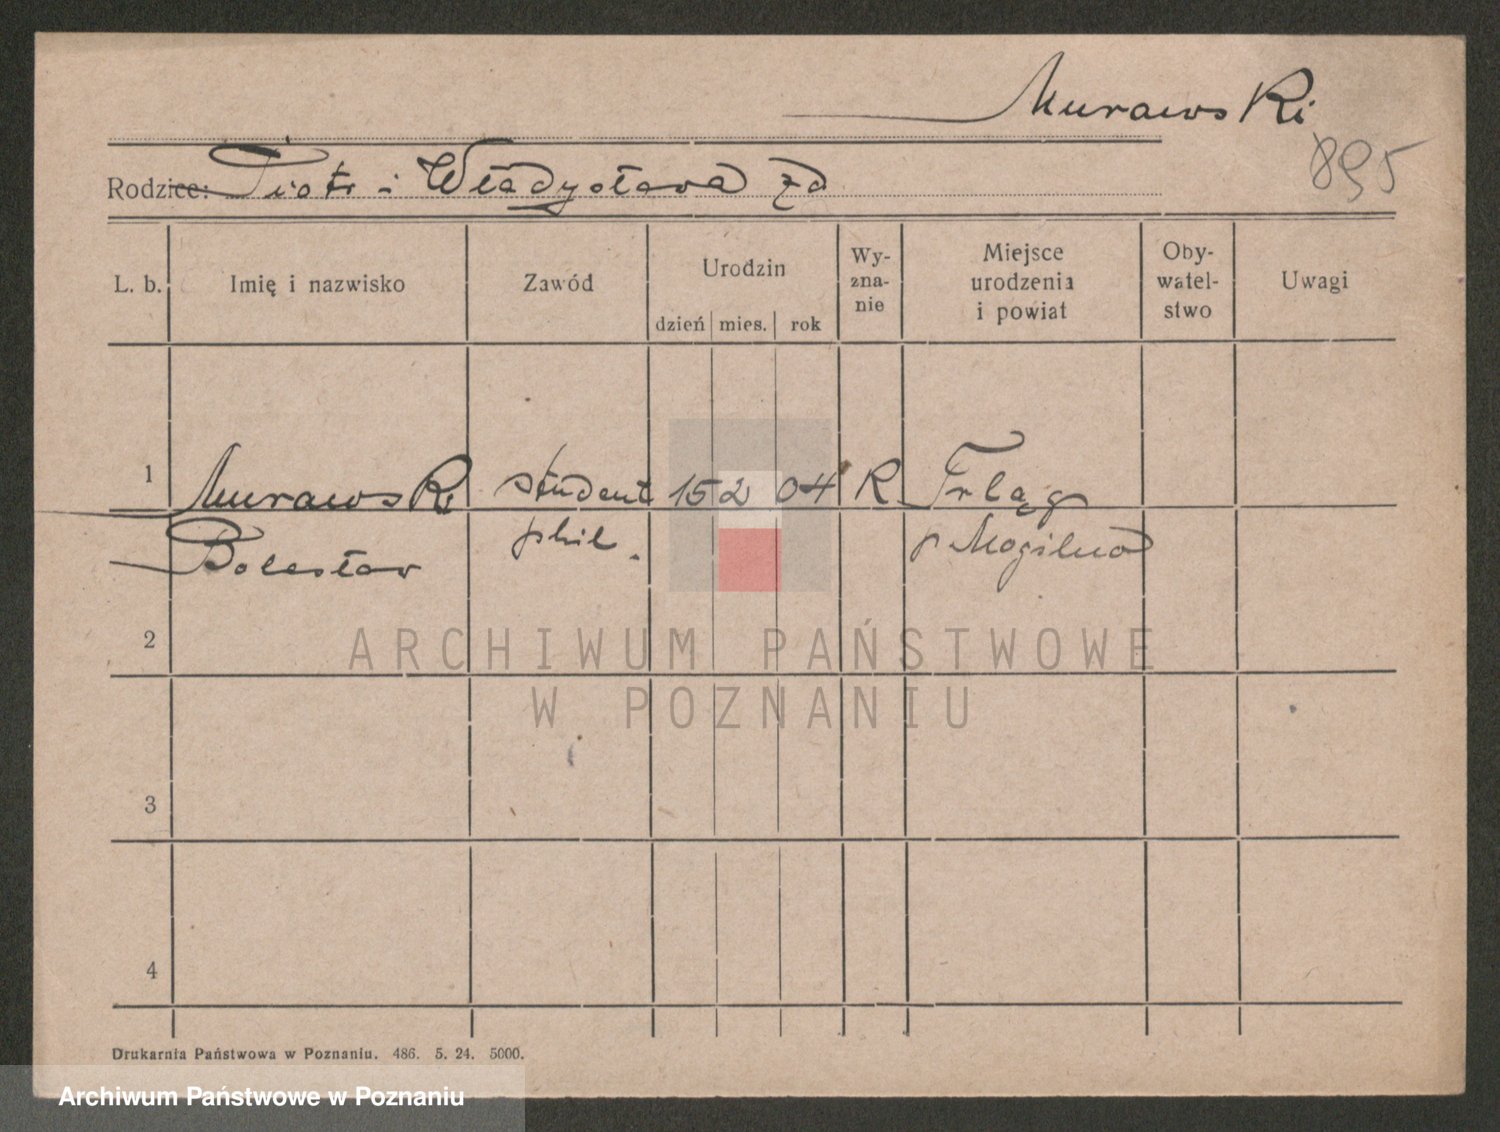 Murawski
895
Rodzice: Piotr i Władysława zd
L. b. Imię i nazwisko Zawód Urodzin Wy- Miejsce Oby- Uwagi
zna- urodzenia watel-
nie i powiat stwo
dzień mies. rok
1 Murawski student 15 2 04 R Trląg
Bolesław phil. p Mogilno
2
ARCHIWUM PAŃSTWOWE
W POZNANIU
3
4
Drukarnia Państwowa w Poznaniu. 486. 5. 24. 5000.
Archiwum Państwowe w Poznaniu